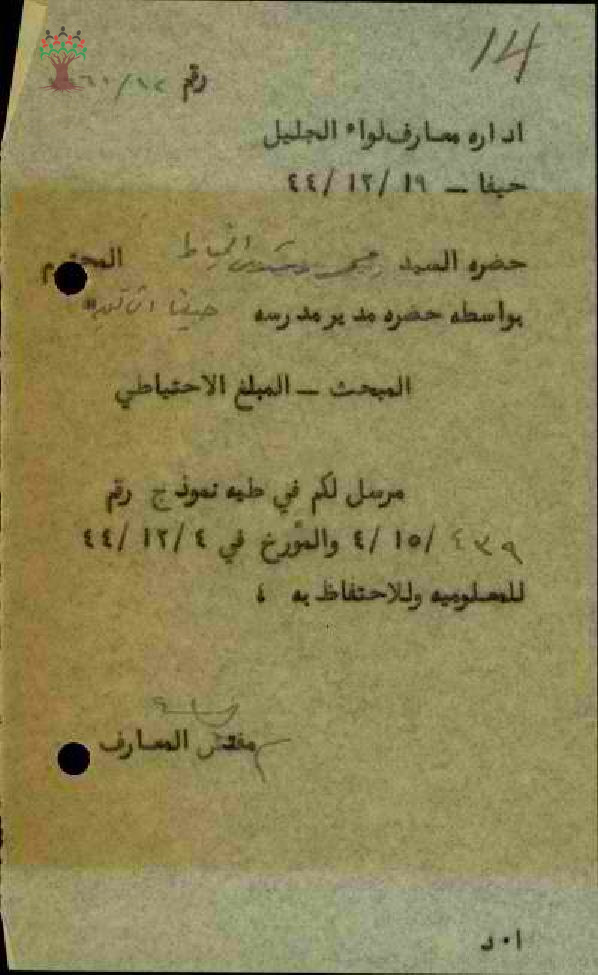 14
رقم
اداره معارف لواء الجليل
حيفا – ١٩ /١٢ /٤٤
حضره السيد المحترم
بواسطه حضره مدير مدرسه حيفا
المبحث – المبلغ الاحتياطي
مرسل لكم في طيه نموذج رقم
٤/١٥/ ٤٣٩ والمؤرخ في ٤ /١٢ /٤٤
للمعلوميه وللاحتفاظ به ،
مفتش المعارف
ا ٠ د